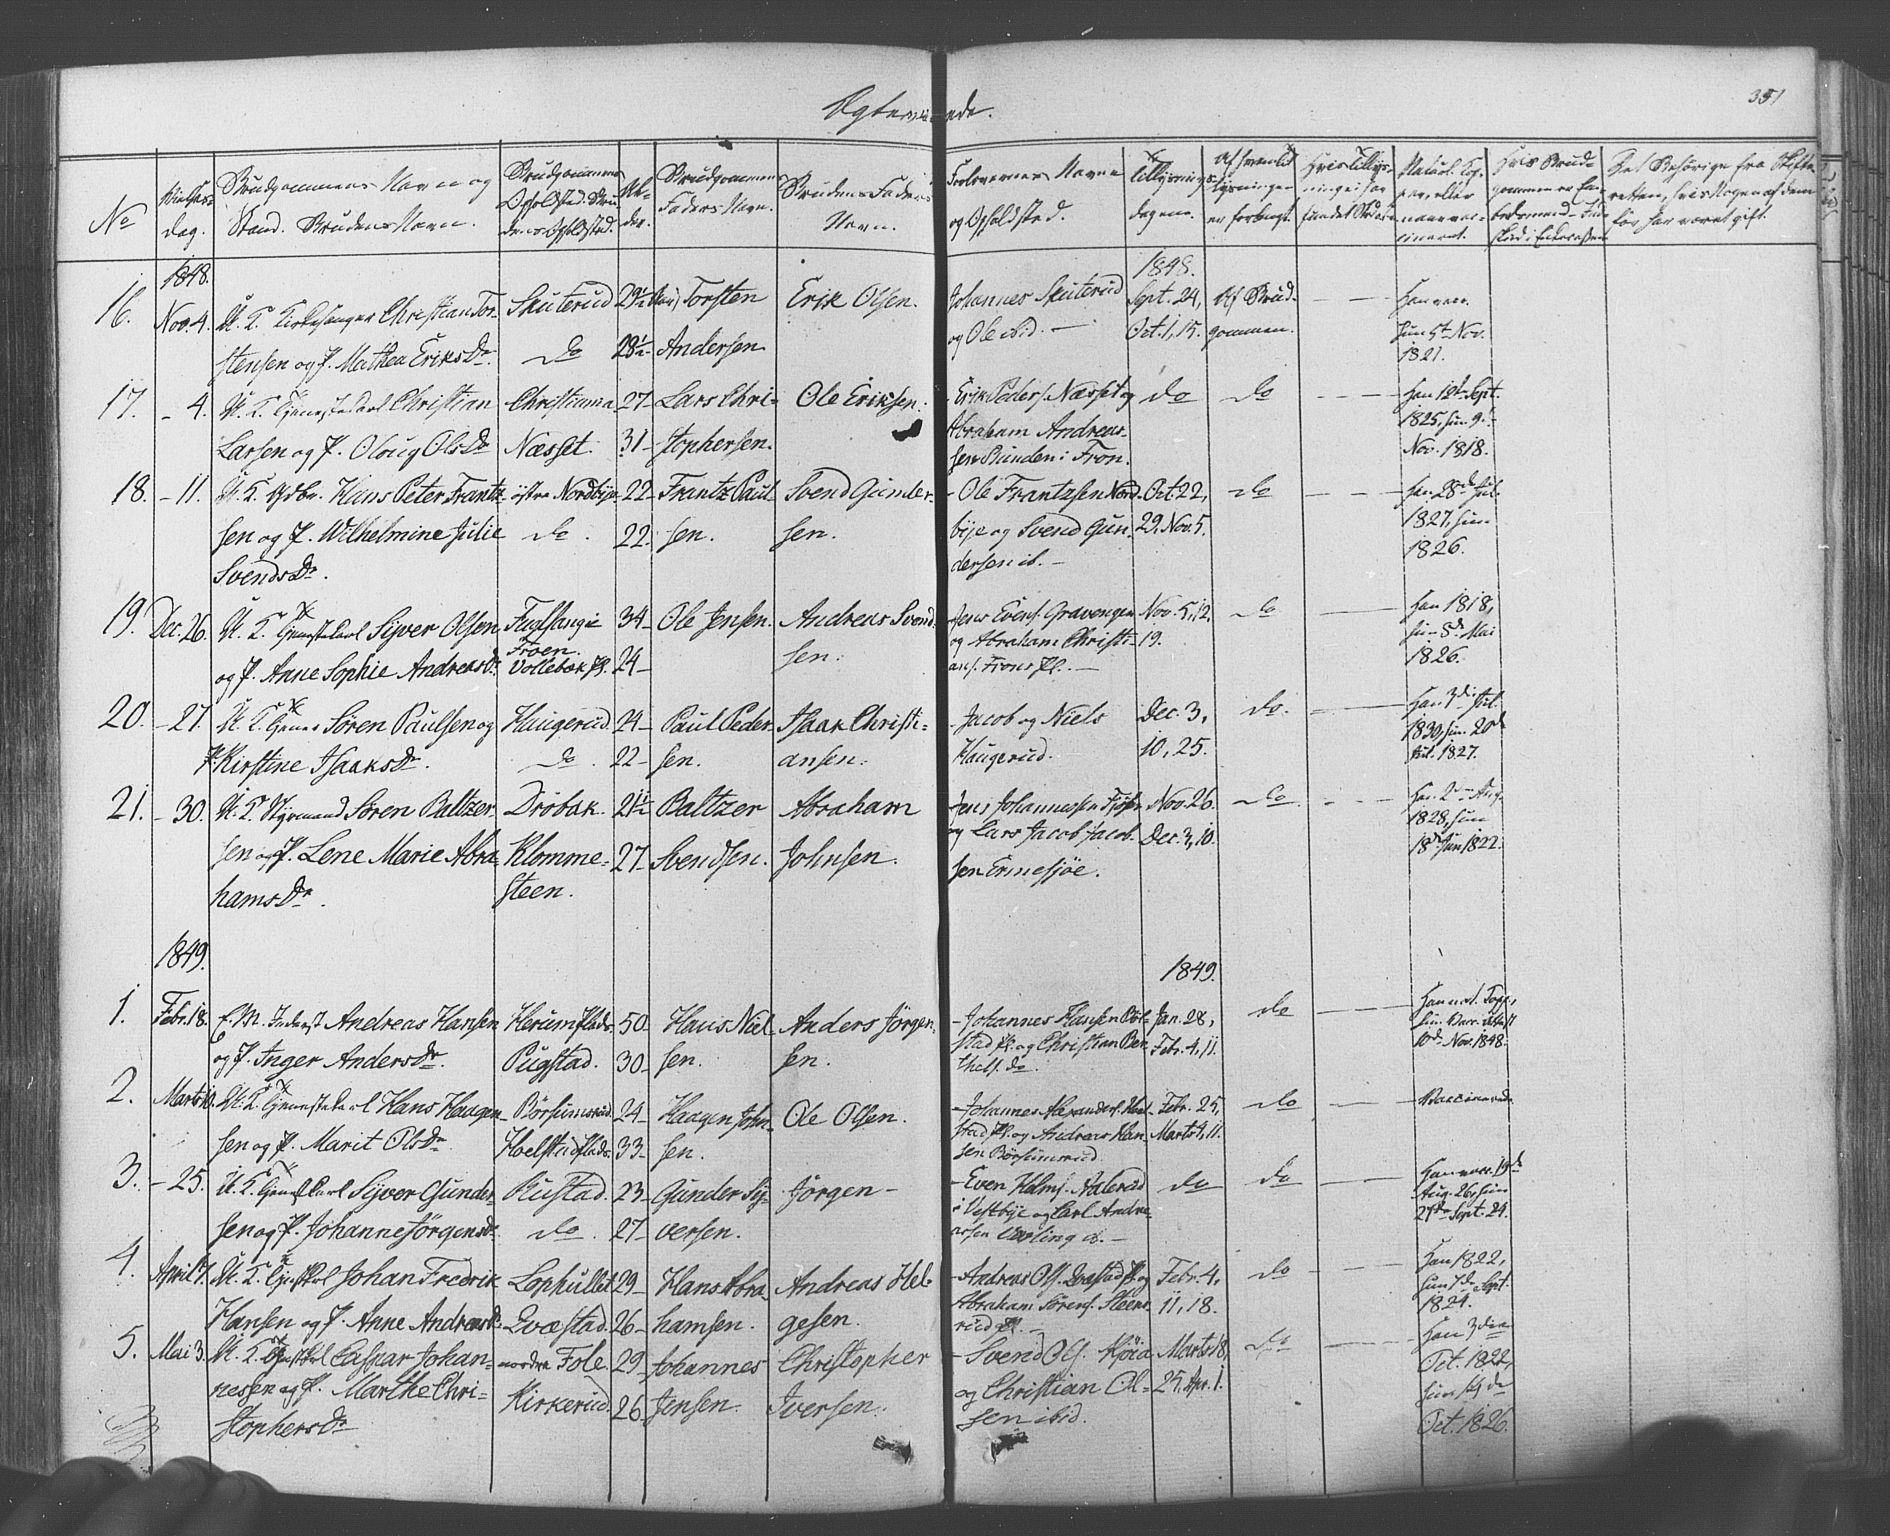 Ægteviede.
351
No
Vielses-
dag.
Brudgommens Navn og
Stand. Brudens Navn.
Brudgommens
Opholdsted. Bru-
dens Opholdsted.
Al-
der.
Brudgommens
Faders Navn.
Brudens Faders
Navn.
Forlovernes Navne
og Opholdsted.
Tillysnings-
dagene.
Af hvem Til-
lysningen
er forlangt
1848.
1848.
16.
Nov. 4.
U. K. Kirkesanger Christian Tor-
stensen og P. Mathea EriksDr.
Skuterud
do
29½
28½
Torsten
Andersen
Erik Olsen.
Johannes Skuterud
og Ole ibid. —
Sept. 24,
Oct. 1, 15.
Af Brud-
gommen.
— —
Han vacc.
hun 5t Nov.
1821.
17.
- 4.
U. K. Tjenestekarl Christian
Larsen og P. Oloug OlsDr
Christiania
Næsset.
27-
31-
Lars Chri-
stophersen.
Ole Eriksen.
- Erik Peders. Næsset og
Abraham Andreas-
sen Bunden i Fron.
do
do
Han 12t Sept.
1825, hun 9.
Nov. 1818.
18.
- 11.
U. K. Gdbr. Hans Peter Frantz-
sen og P. Wilhelmine Julie
SvendsDr.
østre Nordbye
do.
22-
22.
Frantz Paul-
sen.
Svend Gunder-
sen.
- Ole Frantzsen Nord-
bye og Svend Gun-
dersen ib. —
Oct. 22,
29. Nov. 5.
do
Han 28de Jul.
1827, hun
1826.
19.
Dec. 26.
U. K. Tjenestekarl Syver Olsen
og P. Anne Sophie AndreasDr.
Fuglsang i
Froen.
Vollebæk Pl.
34-
24-
Ole Jensen.
Andreas Svend-
sen.
Jens Evens. Gravengen
og Abraham Christi-
ans. Frons Pl. —
Nov. 5, 12,
19.
do
Han 1818,
hun 8de Mai
1826.
20.
- 27.
U. K. Tjener Søren Paulsen og
P. Kirstine IsaaksDr.
Haugerud
do.
24-
22-
Paul Peder-
sen.
Isaak Christi-
ansen.
- Jacob og Niels
Haugerud.
Dec. 3,
10, 25.
do.
Han 3die Jul.
1830, hun 20de
Jul. 1827.
21.
- 30.
U. K. Styrmand Søren Baltzer-
sen og P. Lene Marie Abra-
hamsDr.
Drøbak.
Klomme-
steen.
21½
27-
Baltzer
Svendsen.
Abraham
Johnsen.
Jens Johannessen
og Lars Jacob Jacob-
sen Ermesjøe.
Nov. 26.
Dec. 3, 10.
do
Han 2den Aug.
1828, hun
18de Jun 1822.
1849.
1849.
1.
Febr. 18.
E. M. Inderst Andreas Hansen
og P. Inger AndersDr.
Herum Plads.
Pugstad.
50-
30-
Hans Niel-
sen.
Anders Jørgen-
sen.
- Johannes Hansen Pøl-
stad Pl. og Christian Ber-
thels. do.
Jan. 28,
Febr. 4, 11.
do
Han nat. Kopp.,
hun vacc. Attest
10de Nov. 1848.
2.
Marts 10.
U. K. Tjenestekarl Hans Haagen-
sen og P. Marit OlsDr
Børsumsrud.
Hoelstad Plads.
24-
33-
Haagen John-
sen.
Ole Olsen.
- Johannes Alexanders. Hoel-
stad Pl. og Andreas Han-
sen Børsumrud.
Febr. 25,
Marts 4, 11.
do
Vaccinerede
3.
- 25.
U. K. Tjenestekarl Syver Gunder-
sen og P. Johanne JørgensDr
Rustad.
do.
23-
27-
Gunder Sy-
versen.
Jørgen -
- Even Holms. Aalerud
i Vestbye og Carl Andre-
assen
do
do
Han vacc. 19de
Aug. 26, hun
27de Sept. 24.
4.
April 7.
U. K. Tjenestekarl Johan Fredrik
Hansen og P. Anne AndreasDr.
Lophullet
Qvæstad.
29-
26-
Hans Abra-
hamsen.
Andreas Hel-
gesen.
- Andreas Ols. Qvæstad Pl. og
Abraham Sørens. Steens-
rud Pl. —
Febr. 4,
11, 18.
do
Han 1822,
hun 7de Sept.
1824.
5.
Mai 3.
U. K. Tjenestekarl Caspar Johan-
nessen og P. Marthe Chri-
stophersDr
nordre Fole.
Kirkerud.
29-
26.
Johannes
Jensen.
Christopher
Iversen.
- Svend Ols. Kjøia
og Christian Ol-
sen ibid.
Marts 18,
25, Apr. 1.
do
Han 3die
Oct. 1822,
hun 14de
Oct. 1826.